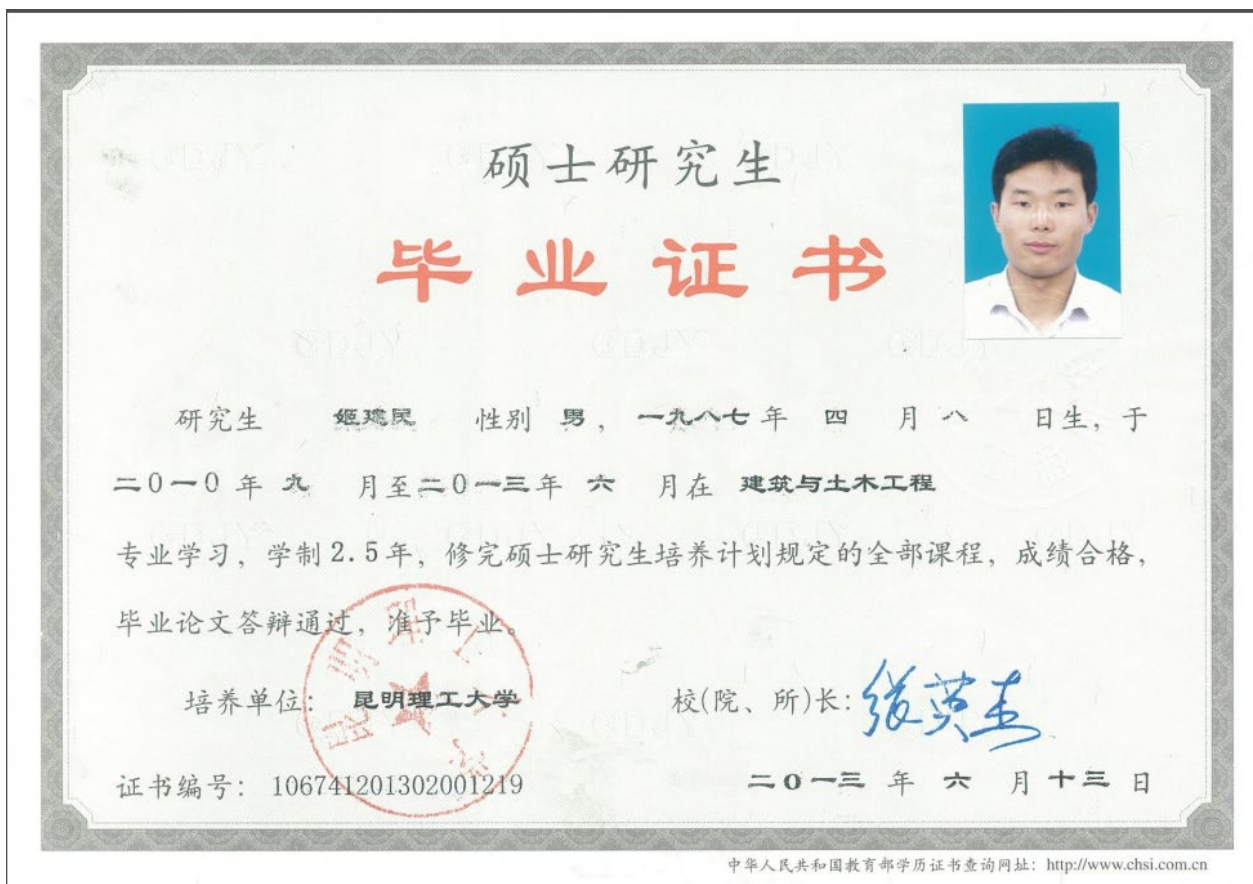 硕士研究生
毕业证书
研究生 姬建民 性别 男，一九八七年 四 月 八 日生，于
二0一0 年 九 月至二0一三年 六 月在 建筑与土木工程
专业学习，学制2.5年，修完硕士研究生培养计划规定的全部课程，成绩合格，
毕业论文答辩通过，准予毕业。
培养单位：昆明理工大学
校(院、所)长：张英杰
昆明理工大学
证书编号：106741201302001219
二0一三 年 六 月 十三 日
中华人民共和国教育部学历证书查询网址：http://www.chsi.com.cn